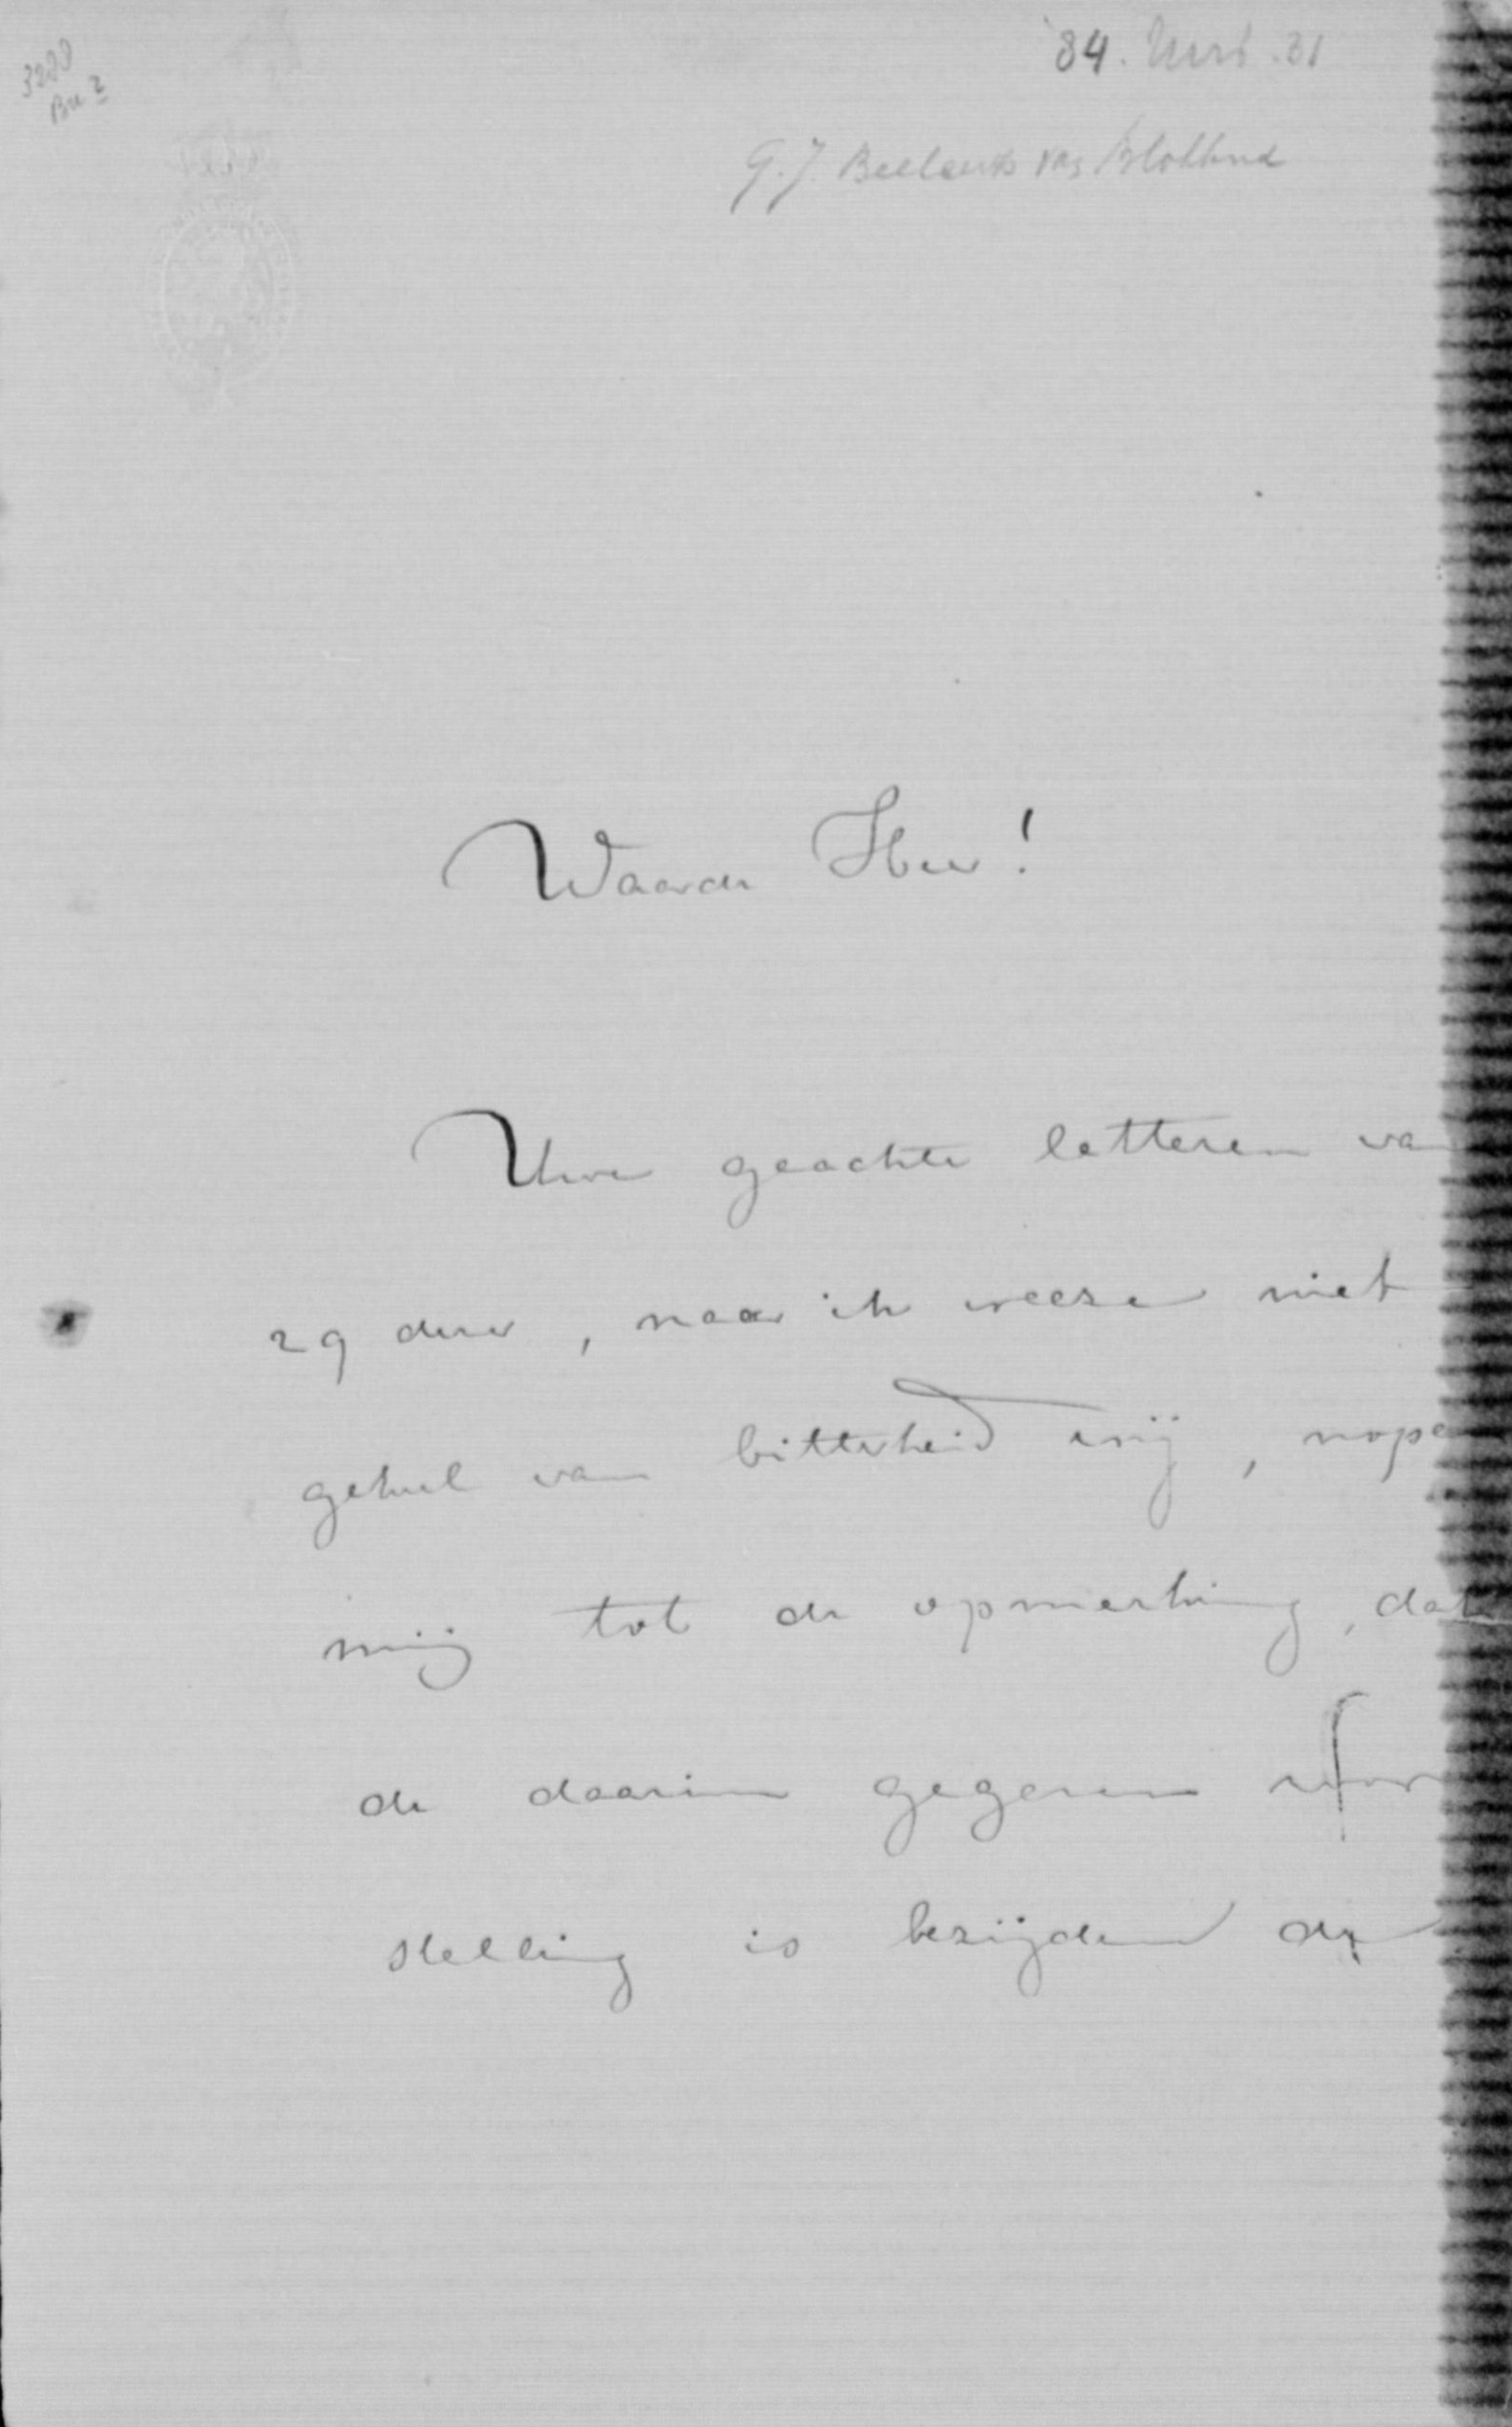 3280
'84. Mrt. 31
G.J. Beelaerts van Blokland
Waarde Heer!
Uwe geachte letteren va
29 dezer, naar ik vreeze niet
geheel van bitterheid vrij, nope
mij tot de opmerking, dat
de daarin gegeven voor
stelling is bezijden de